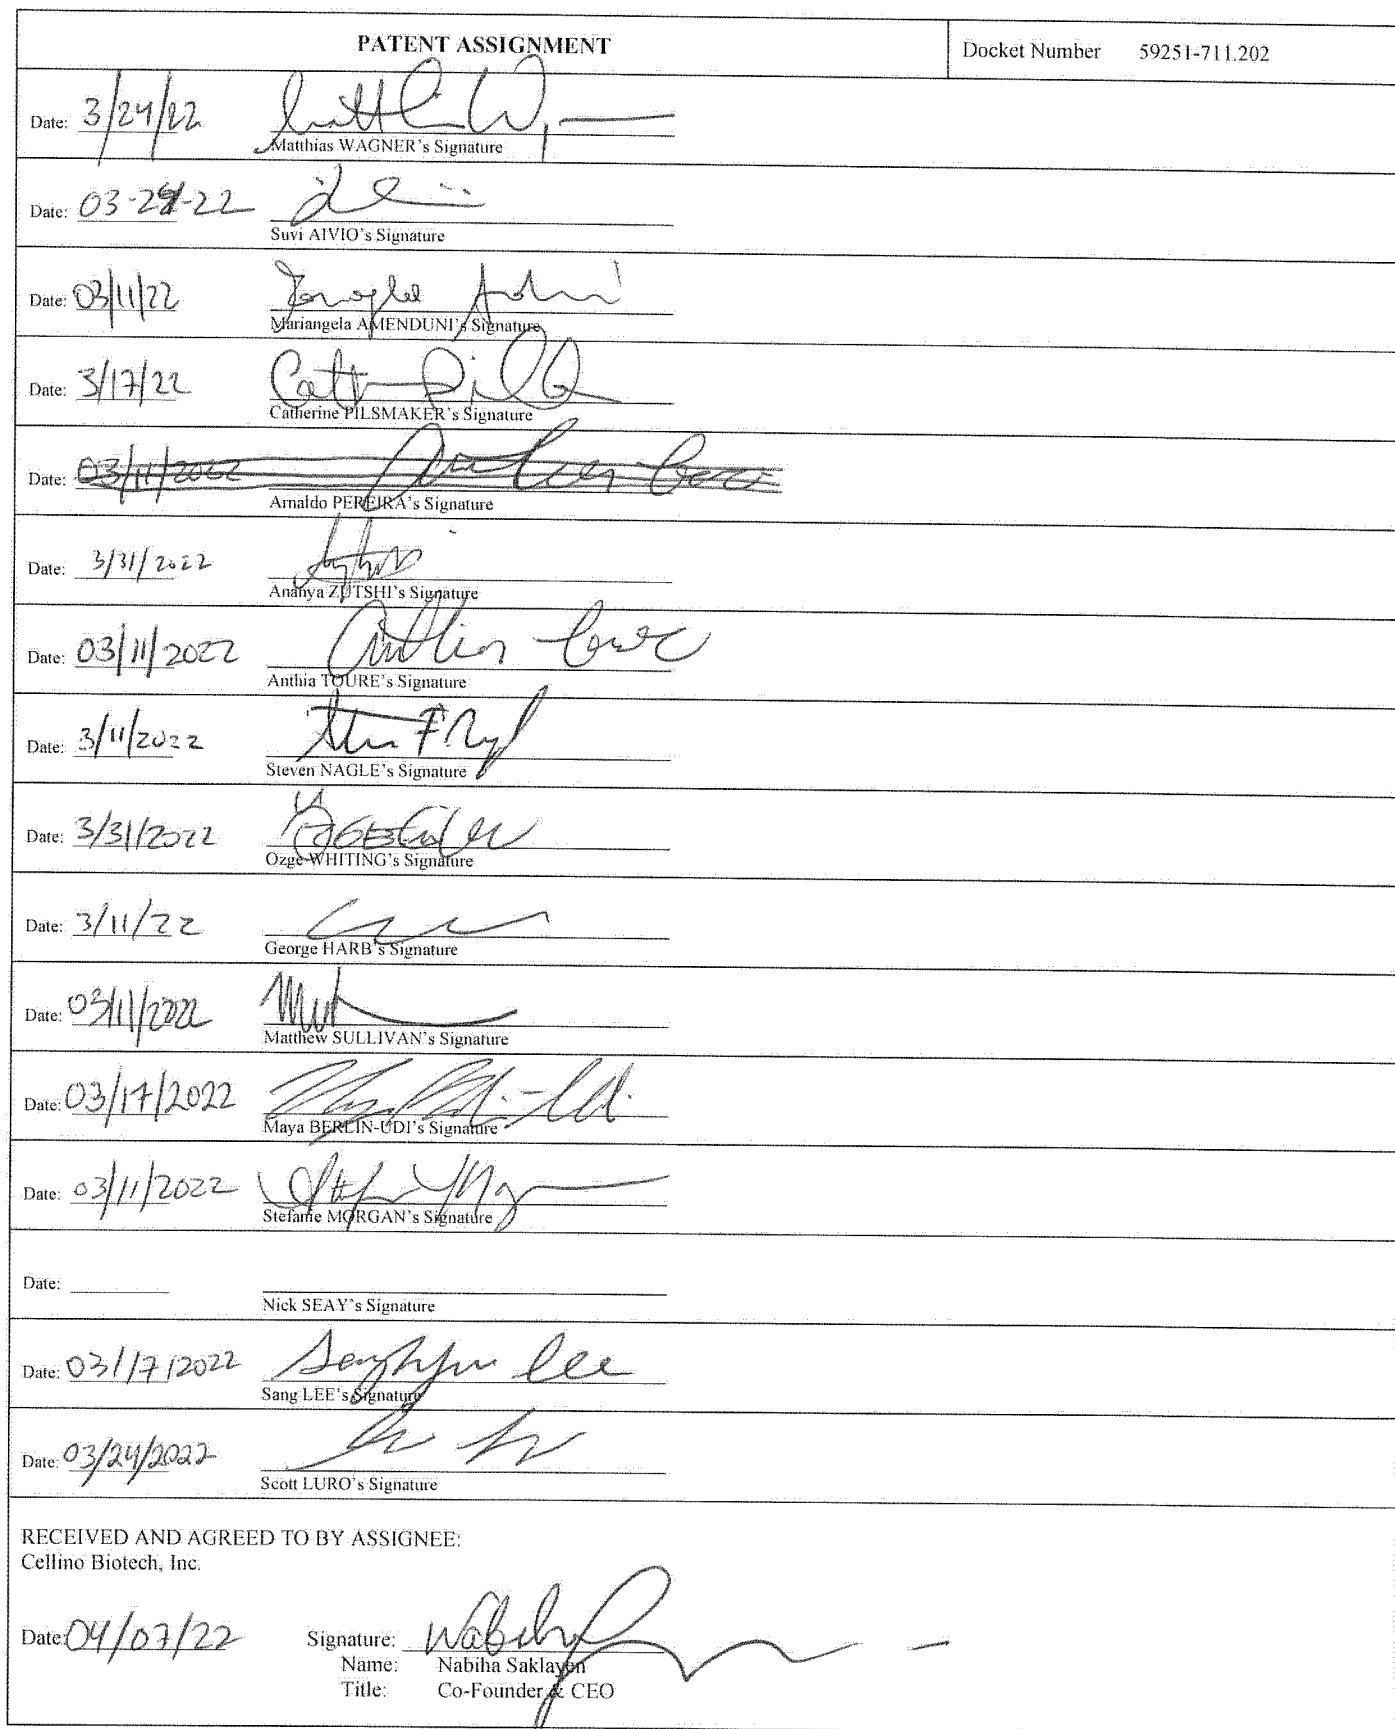 PATENT ASSIGNMENT
Docket Number 59251-711.202
Date: 3/24/22
Matthias WAGNER's Signature
Date: 03-24-22
Suvi AIVIO's Signature
Date: 03/11/22
Mariangela AMENDUNI's Signature
Date: 3/17/22
Catherine PILSMAKER's Signature
Date: 03/11/2022
Arnaldo PEREIRA's Signature
Date: 3/31/2022
Ananya ZUTSHI's Signature
Date: 03/11/2022
Anthia TOURE's Signature
Date: 3/11/2022
Steven NAGLE's Signature
Date: 3/31/2022
Ozge WHITING's Signature
Date: 3/11/22
George HARB's Signature
Date: 03/11/2022
Matthew SULLIVAN's Signature
Date: 03/17/2022
Maya BERLIN-UDI's Signature
Date: 03/11/2022
Stefanie MORGAN's Signature
Date:
Nick SEAY's Signature
Date: 03/17/2022 Lee
Sang LEE's Signature
Date: 03/24/2022
Scott LURO's Signature
RECEIVED AND AGREED TO BY ASSIGNEE:
Cellino Biotech, Inc.
Date: 04/07/22 Signature: Nabiha
Name: Nabiha Saklayen
Title: Co-Founder & CEO